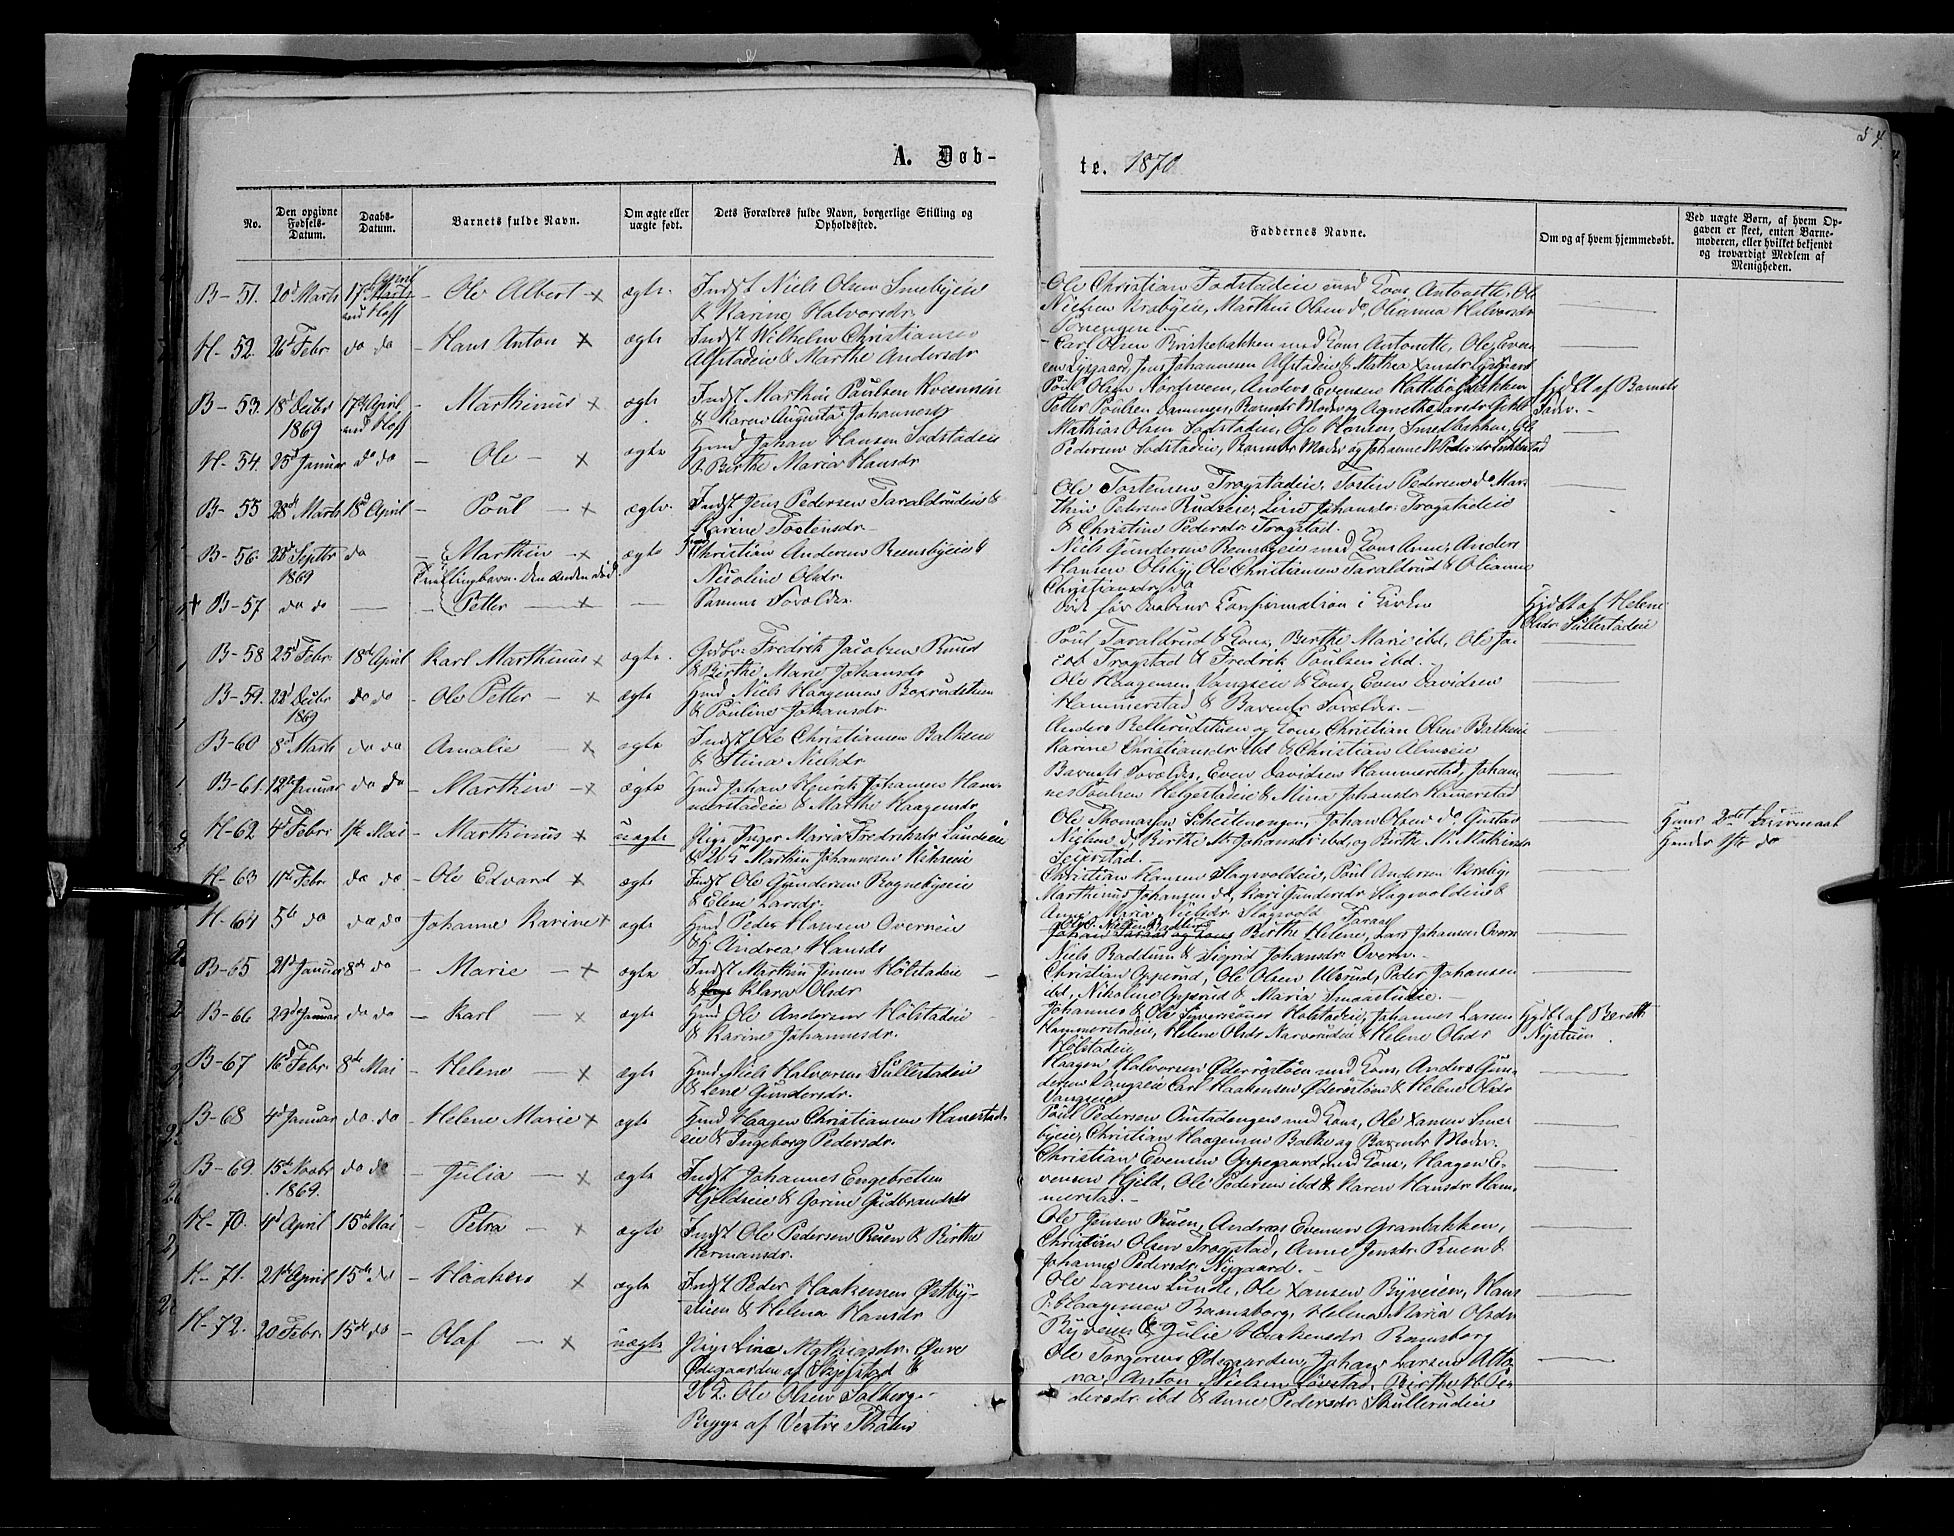 54
A. Døb-
te. 1870
No.
Den opgivne Fødsels-Datum.
Daabs-Datum.
Barnets fulde Navn.
Om ægte eller uægte født.
Dets Forældres fulde Navn, borgerlige Stilling og Opholdssted.
Faddernes Navne.
Om og af hvem hjemmedøbt.
Ved uægte Børn, af hvem Opgaven er skeet, enten Barnemoderen, eller hvilket bekjendt og troværdigt Medlem af Menigheden.
B-51. 20d Marts 17d April Ole Albert ægte Indst Niels Olsen
& Karine Halvorsdr.
Ole Christian Fodstadeie med Kone Antonette, Ole
Nielsen Krabyeie, Marthin Olsen do, Olianna Halvorsdr
H-52. 26d Febr do do Hans Anton ægte Indst Wilhelm Christiansen
Alfstadeie & Marthe Andersdr
Carl Olsen Briskebakken med Kone Antonette, Ole Even
B-53. 18d Decbr 1869 17de April ved Hoff Marthinus ægte Indst Marthin Paulsen
& Karen Augusta Johannesdr
Hjdbt af Barnets
Fader.
H-54. 25d Januar do do Ole ægte Hmd Johan Hansen Sodstadeie
& Birthe Maria Hansdr
Mathias Olsen Sodstadeie, Ole Hansen Smedbakken, Ole
Pedersen Sodstadeie, Barnets Moder og Johanne
B-55 28d Marts 18d April Poul ægte Indst Jens Pedersen Taraldrudeie &
Karine Tostensdr
Ole Tostensen Trogstadeie, Tosten Pedersen do Mar
thin Pedersen Rudseie, Lene Johansdr Trogstadeie
& Christine Pedersdr Trogstad.
B-56. 22d Septbr 1869 do Marthin ægte Christian Andersen Reensbyeie &
Nicoline Olsdr.
Tvillingbarn. Den anden død.
Niels Gundersen Reensbyeie med Kone Anne, Anders
Hansen Olsby, Ole Christiansen Taraldrud & Olianne
Christiansdr do
B-57 do do Petter Samme Forældre.
Død før Daabens Confirmation i Kirken
Hjdbt af Helene
Olsdr Sullestadeie
B-58 25d Febr 18d April Karl Marthinus ægte Fredrik Jacobsen Ruud
& Birthe Marie Johansdr
Poul Taraldrud & Kone, Birthe Marie ibd, Ole Ja
cob Trogstad & Fredrik Poulsen ibd.
B-59. 22d Decbr 1869 do do Ole Petter ægte Hmd Niels Haagensen
& Pauline Johansdr.
Ole Haagensen Vangseie & Kone, Even Davidsen
Hammerstad & Barnets Forældre.
B-60 8d Marts do do Amalie ægte Indst Ole Christiansen Balkeeie
& Stina Nielsdr
Karine Christiansdr ibd & Christian Almseie
B-61. 12te Januar do do Marthin ægte Hmd Johan Henrik Johansen Ham-
merstadeie & Marthe Haagensdr
Barnets Forældre, Even Davidsen Hammerstad, Johan
nes Poulsen Helgestadeie & Mina Johansdr Hamerstad
H-62. 4d Febr 1ste Mai Marthinus uægte Pige Inger Maria Fredriksdr Lundeie
& Marthin Johannesen
Ole Thomassen Scheitenengen, Johan Olsen do, Gustav
Nielsen do, Birthe M. Johansdr ibd, og Birthe M. Mathisdr
Seierstad.
Hans 2det Leiermaal
Hendes 1ste do
H-63 11te Febr do do Ole Edvard ægte Indst Ole Gundersen Rognebyeie
& Elene Larsdr.
Christian Hansen Slagsvoldeie, Poul Andersen
Marthinus Johansen do, Kari Gundersdr Slagsvoldeie &
Anne Maria Nielsdr Slagsvold
H-64 5te do do do Johanne Karine ægte Hmd Peder Hansen Overneie
& Andrea Hansdr
Birthe Helene, Lars Johansen Overn
Niels Baddum & Sigrid Johansdr Overn.
B-65 21de Januar 8de do Marie ægte Indst Marthin Jensen Holstadeie
& Klara Olsdr
Christian Opperud, Ole Olsen Ulsrud, Peder Johansen
ibd, Nikoline Opperud & Maria Smaastueie.
B-66 29d Januar do do Karl ægte Hmd Ole Andersen Holstadeie
& Karine Johannesdr.
Johannes & Ole Syversønner Holstadeie, Johannes Larsen
Hammerstadeie, Helene Olsdr Narverudeie & Helene Olsdr
Holstadeie
Hjdbt af Bereth
Nystuen
B-67 16d Febr 8de Mai Helene ægte Hmd Niels Halvorsen Sullestadeie
& Lene Gundersdr.
Haagen Halvorsen Øderostøen med Kone, Anders Gun-
dersen Vangseie, Carl Haakensen Øderostøen & Helene Olsdr
Vangseie
B-68 4d Januar do do Helene Marie ægte Hmd Haagen Christiansen Hamerstad-
eie & Ingeborg Pedersdr.
Poul Pedersen med Kone, Ole Hansen Sme-
byeie, Christian Haagensen Balke og Barnets Moder.
B-69. 15de Novbr 1869. do do Julia ægte Indst Johannes Engebretsen
Hjeldseie & Gorine Gudbrandsdr
Christian Evensen Oppegaard med Kone, Haagen E-
vensen Hjeld, Ole Pedersen ibd & Karen Hansdr Ham-
merstad.
H-70. 4d April 15de Mai Petra ægte Indst Ole Pedersen Ruen & Birthe
Hermansdr.
Ole Jensen Ruen, Andreas Evensen Granbakken,
Christian Olsen Trogstad, Anne Jensdr Ruen &
Johanne Pedersdr Nygaard.
H-71. 21de April 15de do Haaken ægte Indst Peder Haakensen Østby-
stuen & Helena Hansdr
Ole Larsen Lunde, Ole Hansen Byveien, Hans
P. Haagensen Ramsborg, Helena Maria Olsdr
Byveien & Julie Haakensdr Ramsborg
H-72. 20 Febr. 15de do Olaf uægte Pige Line Mathiasdr Øvre
Ødegaarden af &
Ole Olsen Salberg-
Brygge af Vestre Thoten
Ole Torgersen Ødegaarden, Johan Larsen Alto-
na, Anton Nielsen Løvstad, Birthe M. Pe-
dersdr ibd & Anne Pedersdr Skullerudeie